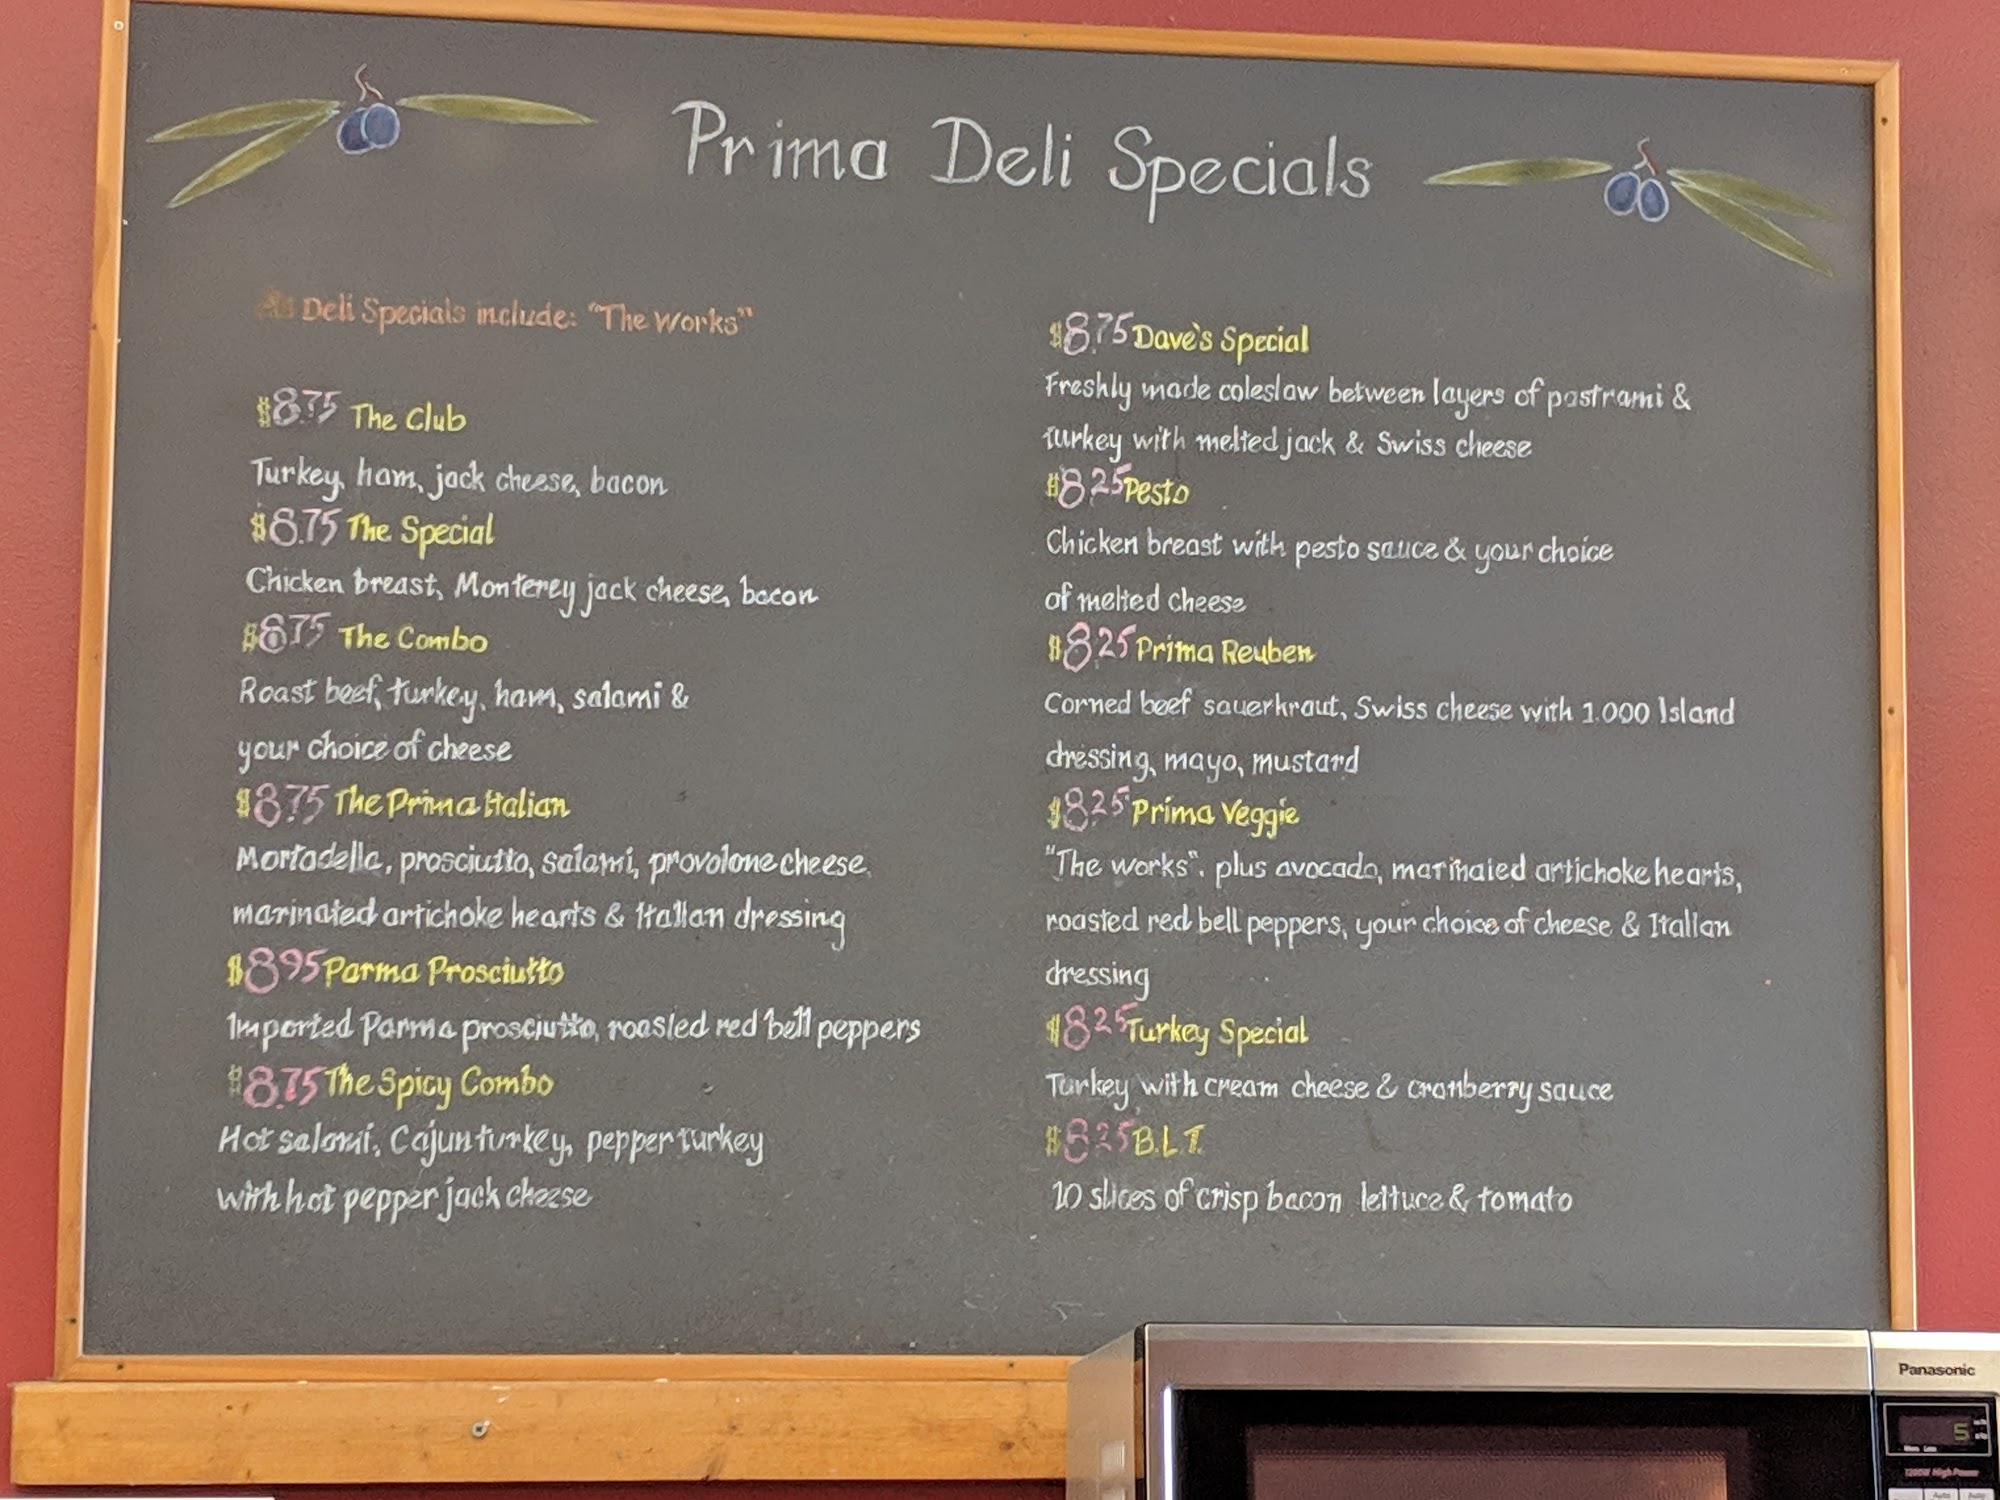 Prima Deli Specials
Deli Specials include: "The Works"
$8.75 The Club
Turkey, ham, jack cheese, bacon
$8.75 The Special
Chicken breast, Monterey jack cheese, bacon
$8.75 The Combo
Roast beef, turkey, ham, salami &
your choice of cheese
$8.75 The Prima Italian
Mortadella, prosciutto, salami, provolone cheese,
marinated artichoke hearts & Italian dressing
$8.95 Parma Prosciutto
Imported Parma prosciutto, roasted red bell peppers
$8.75 The Spicy Combo
Hot salami, Cajun turkey, pepper turkey
with hot pepper jack cheese
$8.75 Dave's Special
Freshly made coleslaw between layers of pastrami &
turkey with melted jack & Swiss cheese
$8.25 Pesto
Chicken breast with pesto sauce & your choice
of melted cheese
$8.25 Prima Reuben
Corned beef sauerkraut, Swiss cheese with 1.000 Island
dressing, mayo, mustard
$8.25 Prima Veggie
"The works". plus avocado, marinated artichoke hearts,
roasted red bell peppers, your choice of cheese & Italian
dressing
$8.25 Turkey Special
Turkey with cream cheese & cranberry sauce
B.L.T.
10 slices of crisp bacon lettuce & tomato
Panasonic
5
1200W High Power